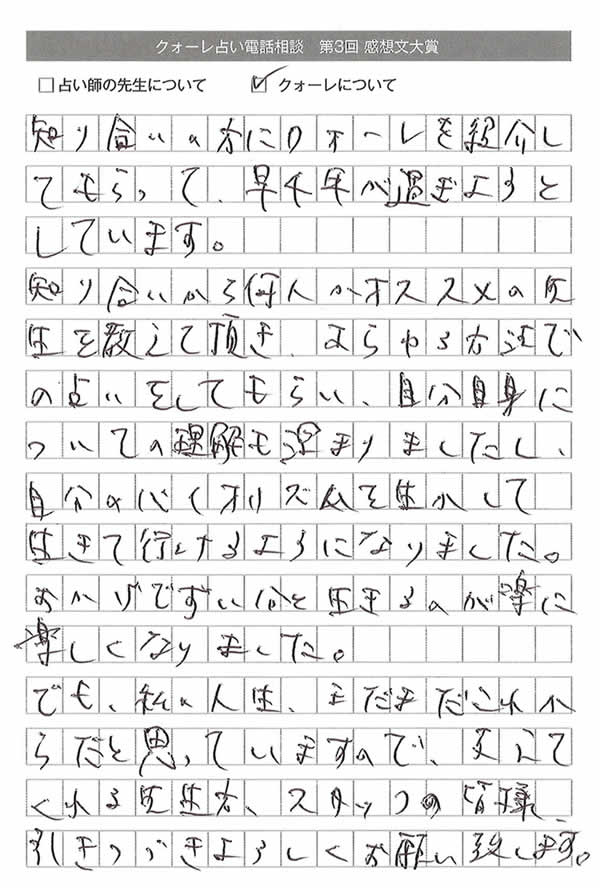 クォーレ占い電話相談　第3回 感想文大賞
□占い師の先生について　☑クォーレについて
知り合いの方にクォーレを紹介し
てもらって、早半年が過ぎようと
しています。
知り合いから何人かオススメの先
生を教えて頂き、あらゆる方法で
の占いをしてもらい、自分自身に
ついての理解も深まりましたし、
自分のバイオリズムを生かして
生きて行けるようになりました。
おかげでずい分と生きるのが楽に
楽しくなりました。
でも、私の人生、まだまだこれか
らだと思っていますので、支えて
くれる先生方、スタッフの皆様、
引きつづきよろしくお願い致します。